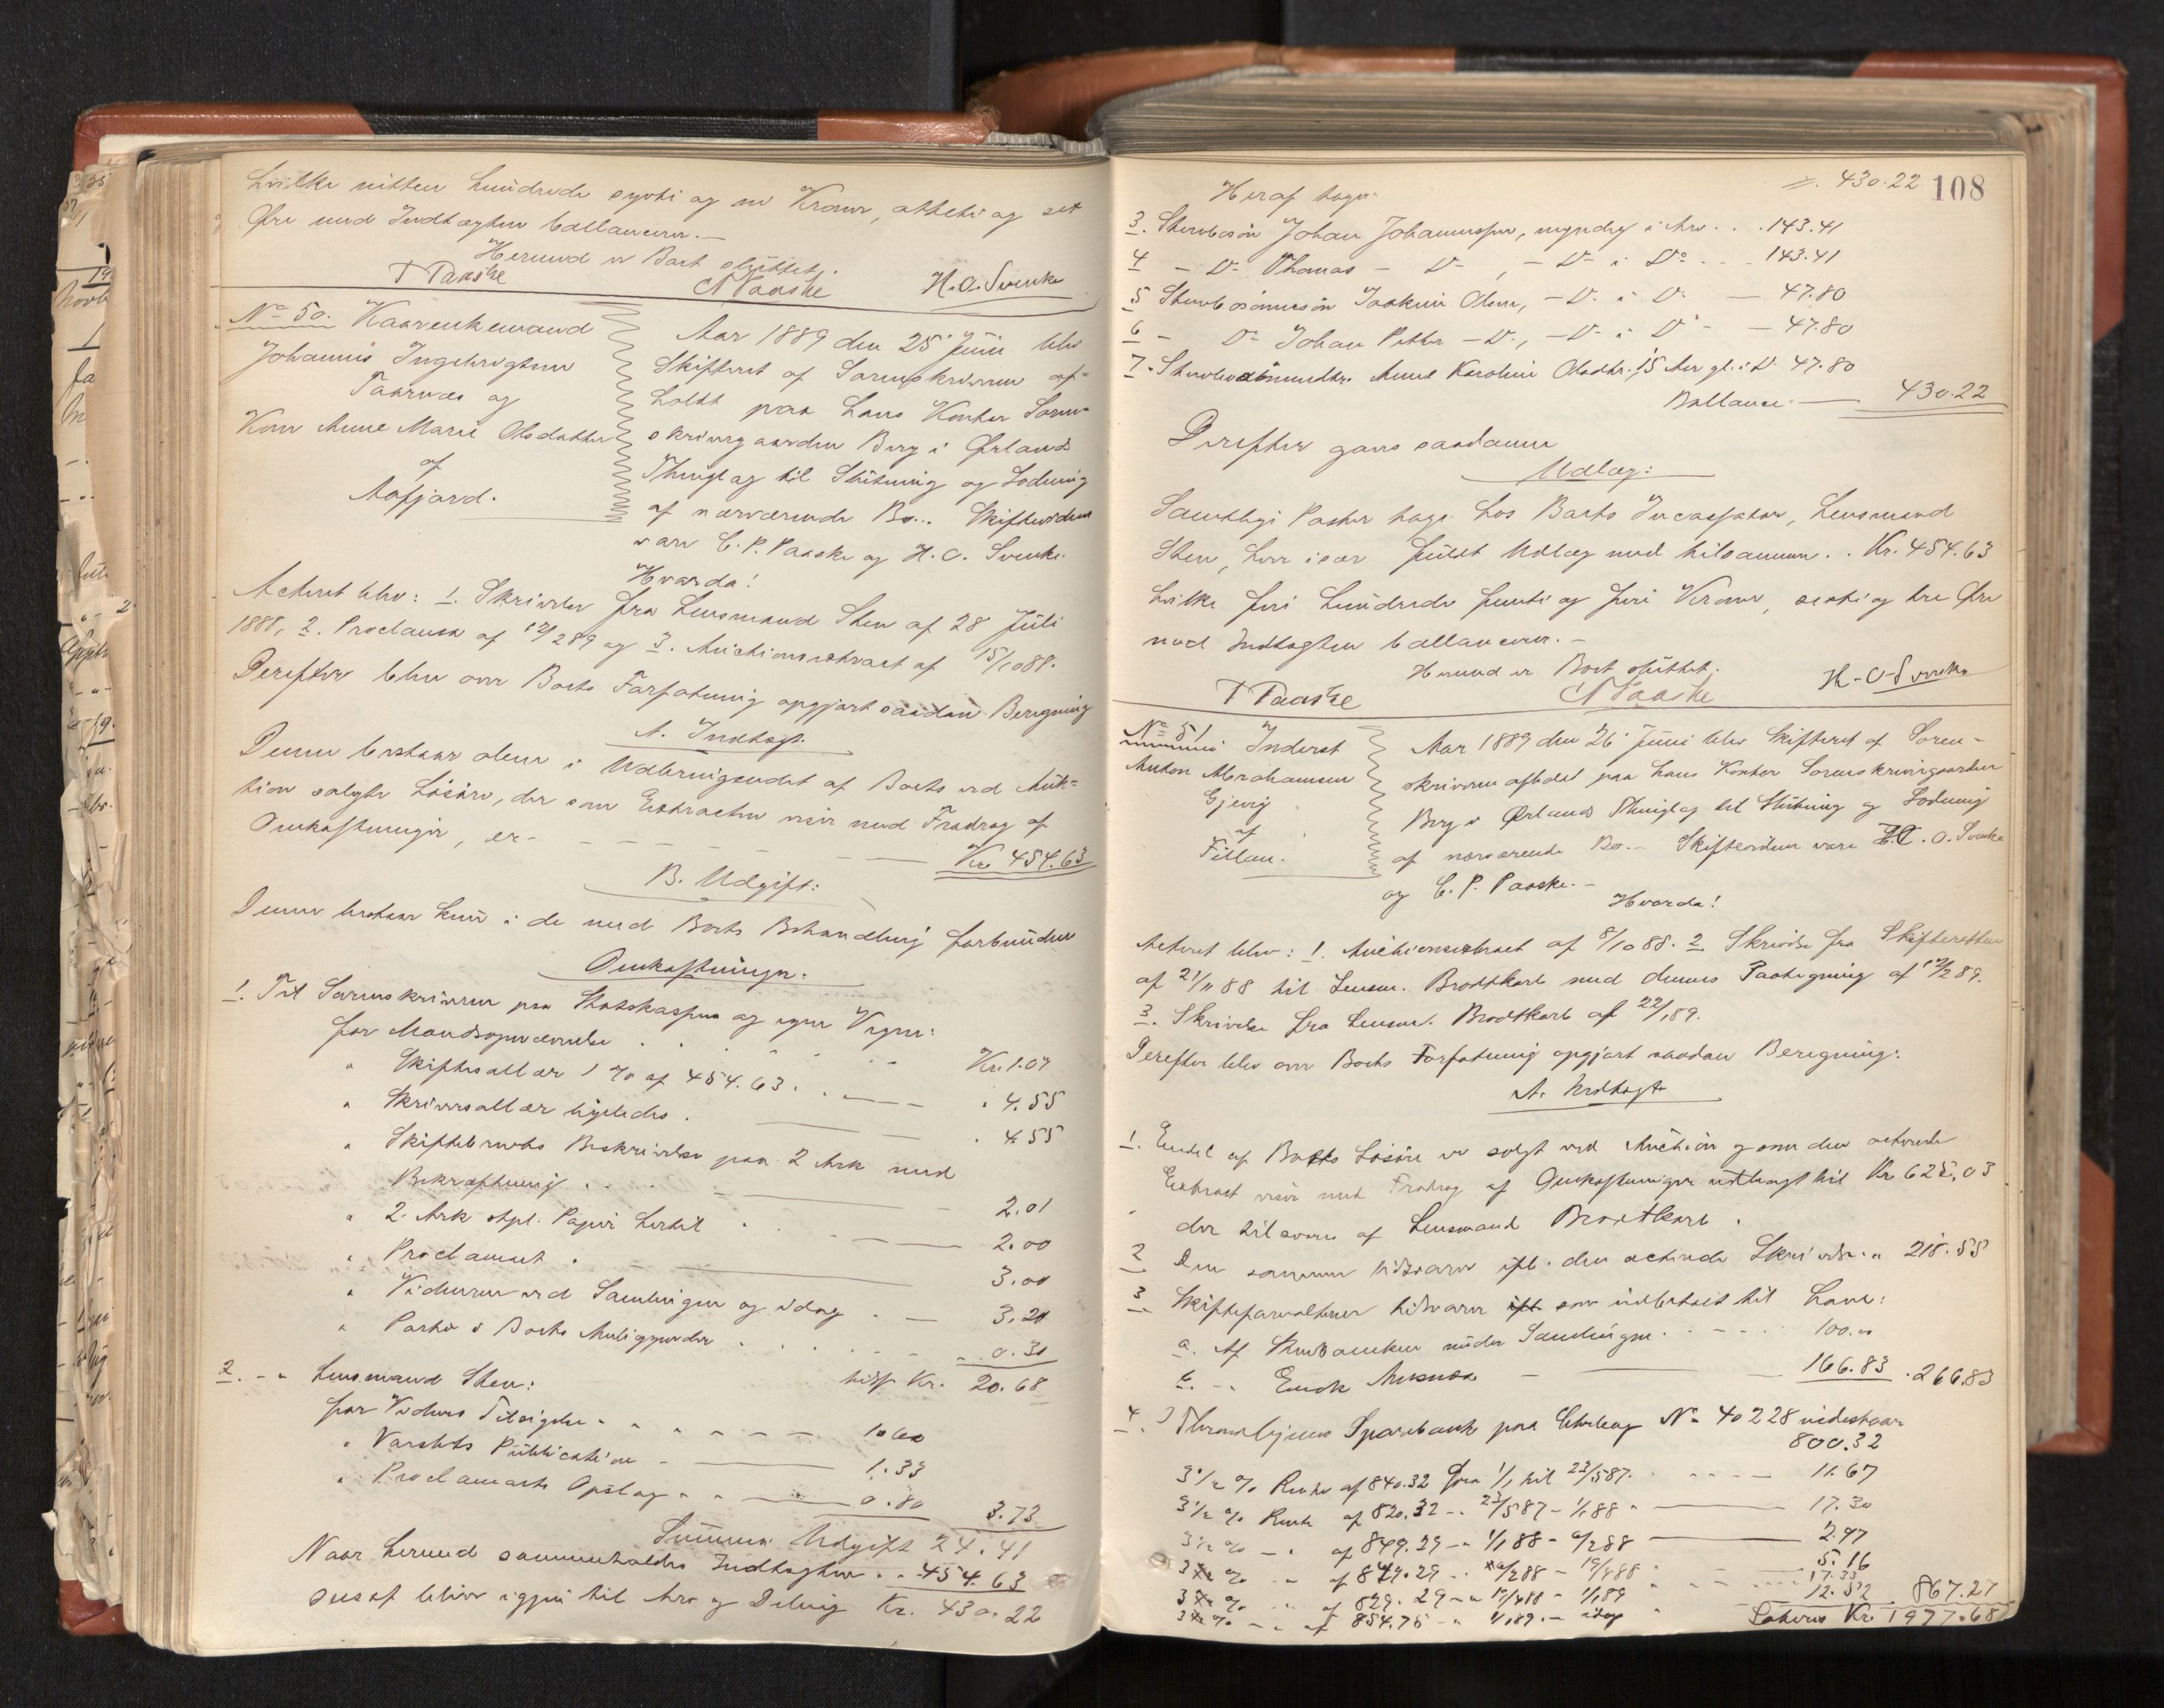 hvilke nitten hundrede sytti og ni Kroner, otteti og set
Øre med Indtægten ballancerer.—
Hermed er Boet sluttet.
T Paaske N Paaske H.O. Svenke
No 50. Kaarenkemand
Johannes Ingebrigtsen
Taarnæs og
Kone Anne Marie Olsdatter
af
Aafjord.
Aar 1889 den 25 Juni blev
Skifteret af Sorenskriveren af-
holdt paa hans Kontor Soren-
skrivergaarden Berg i Ørlands
Thinglag til Slutning og Lodning
af nærværende Bo... Skiftevidner
vare C. P. Paaske og H. O. Svenke.
Hvorda!
Acteret blev: 1. Skrivelse fra Lensmand Sten af 28 Juli
1888, 2. Proclama af 12/2 89 og 3. Auctionsextract af 15/10 88.
Derefter blev over Boets Forfatning opgjort saadan Beregning
A. Indtægt.
Denne bestaar alene i Udbringendet af Boets ved Auk-
tion solgte Løsøre, der som Extracten viser med Fradrag af
Omkostninger, er - - - - Kr. 454.63
B. Udgift:
Denne bestaar kun i de med Boets Behandling forbundne
Omkostninger:
1. Til Sorenskriveren paa Statskassens og egne Vegne:
for Mandsopnævnelse . . . Kr. 1.07
" Skiftesallær 1 % af 454.63 . — " 4.55
" Skriversallær ligeledes . — " 4.55
" Skiftebrevets Beskrivelse paa 2 Ark med
Bekræftning . . — 2.01
" 2 Ark stpl. Papir hertil . — 2.00
" Proclamaet . — 3.00
" Vidnerne ved Samlingen og idag . — 3.20
" Porto i Boets Anliggender . . . . 0.30
tils. Kr. 20.68
2. - " Lensmand Sten:
for Vidners Tilsigelse - - - - 1.60
" Varslets Publication - — 1.33
" Proclamaets Opslag - - — 0.80 3.73
Summa Udgift 24.41
Naar hermed sammenholdes Indtægten . . 454.63
sees at blive igjen til Arv og Deling Kr. 430.22
108
=. 430.22
Heraf tager:
3. Stervbosøn Johan Johannessen, myndig i Arv . . . 143.41
4 — Do Thomas — Do , — Do i Do - - 143.41
5 Stervbosønnesøn Joakim Olsen, — Do i Do — 47.80
6 — Do Johan Petter — Do, — Do i Do — 47.80
7. Stervbosønnedtr. Anne Karoline Olsdtr. 15 Aar gl. i Do 47.80
Ballance — 430.22
Derefter gaves saadanne
Udlæg:
Samtlige Poster tage hos Boets Incassator, Lensmand
Sten, hver især fuldt Udlæg med tilsammen . . Kr. 454.63
hvilke firi hundrede femti og firi Kroner, sexti og tre Øre
med Indtægten ballancerer. —
Hermed er Boet sluttet.
T Paaske N Paaske H-O-Svenke
No 51
Inderst
Anton Abrahamsen
Gjevig
af
Fillan.
Aar 1889 den 26 Juni blev Skifteret af Soren-
skriveren afholdt paa hans Kontor Sorenskrivergaarden
Berg i Ørlands Thinglag til Slutning og Lodning
af nærværende Bo.— Skiftevidner vare H. O. Svenke
og C. P. Paaske. —
Hvorda!
Acteret blev: 1. Auctionsextract af 8/10 88. 2 Skrivelse fra Skifteretten
af 21/11 88 til Lensm. Brodtkorb med dennes Paategning af 12/2 89.
3. Skrivelse fra Lensm. Brodtkorb af 22/1 89.
Derefter blev over Boets Forfatning opgjort saadan Beregning:
A. Indtægt
1. Endel af Boets Løsøre er solgt ved Auction og som den acterede
Extract viser med Fradrag af Omkostninger udbragt til Kr. 625,03
der tilsvares af Lensmand Brodtkorb .
2 Den samme tilsvarer ifl. den acterede Skrivelse . " 218.55
3 Skifteforvalteren tilsvarer ifl. som indbetalt til ham:
a. Af Stervboenken under Samlingen . - - . 100.00
b. - " Enok — 166.83 . 266.83
4. I Throndhjems Sparebank paa Conto No 40228 indestaar
800.32
3 1/2 % Rente af 840.32 fra 1/1 til 23/5 87. - - - - 11.67
3 1/2 % Rente af 820.32 - " 23/5 87 - 1/1 88 " — 17.30
3 1/2 % — " af 849.29 - " 1/1 88 - 6/2 88 — 2.97
3 % - " af 849.29 - " 6/2 88 - 19/4 88 - 5.16
3 % - " af 829.29 - " 19/4 88 - 1/1 89 " - - 17.33
3 % - " af 854.75 - " 1/1 89 - idag " 12.52 . 867.27
Lateris Kr. 1977.68